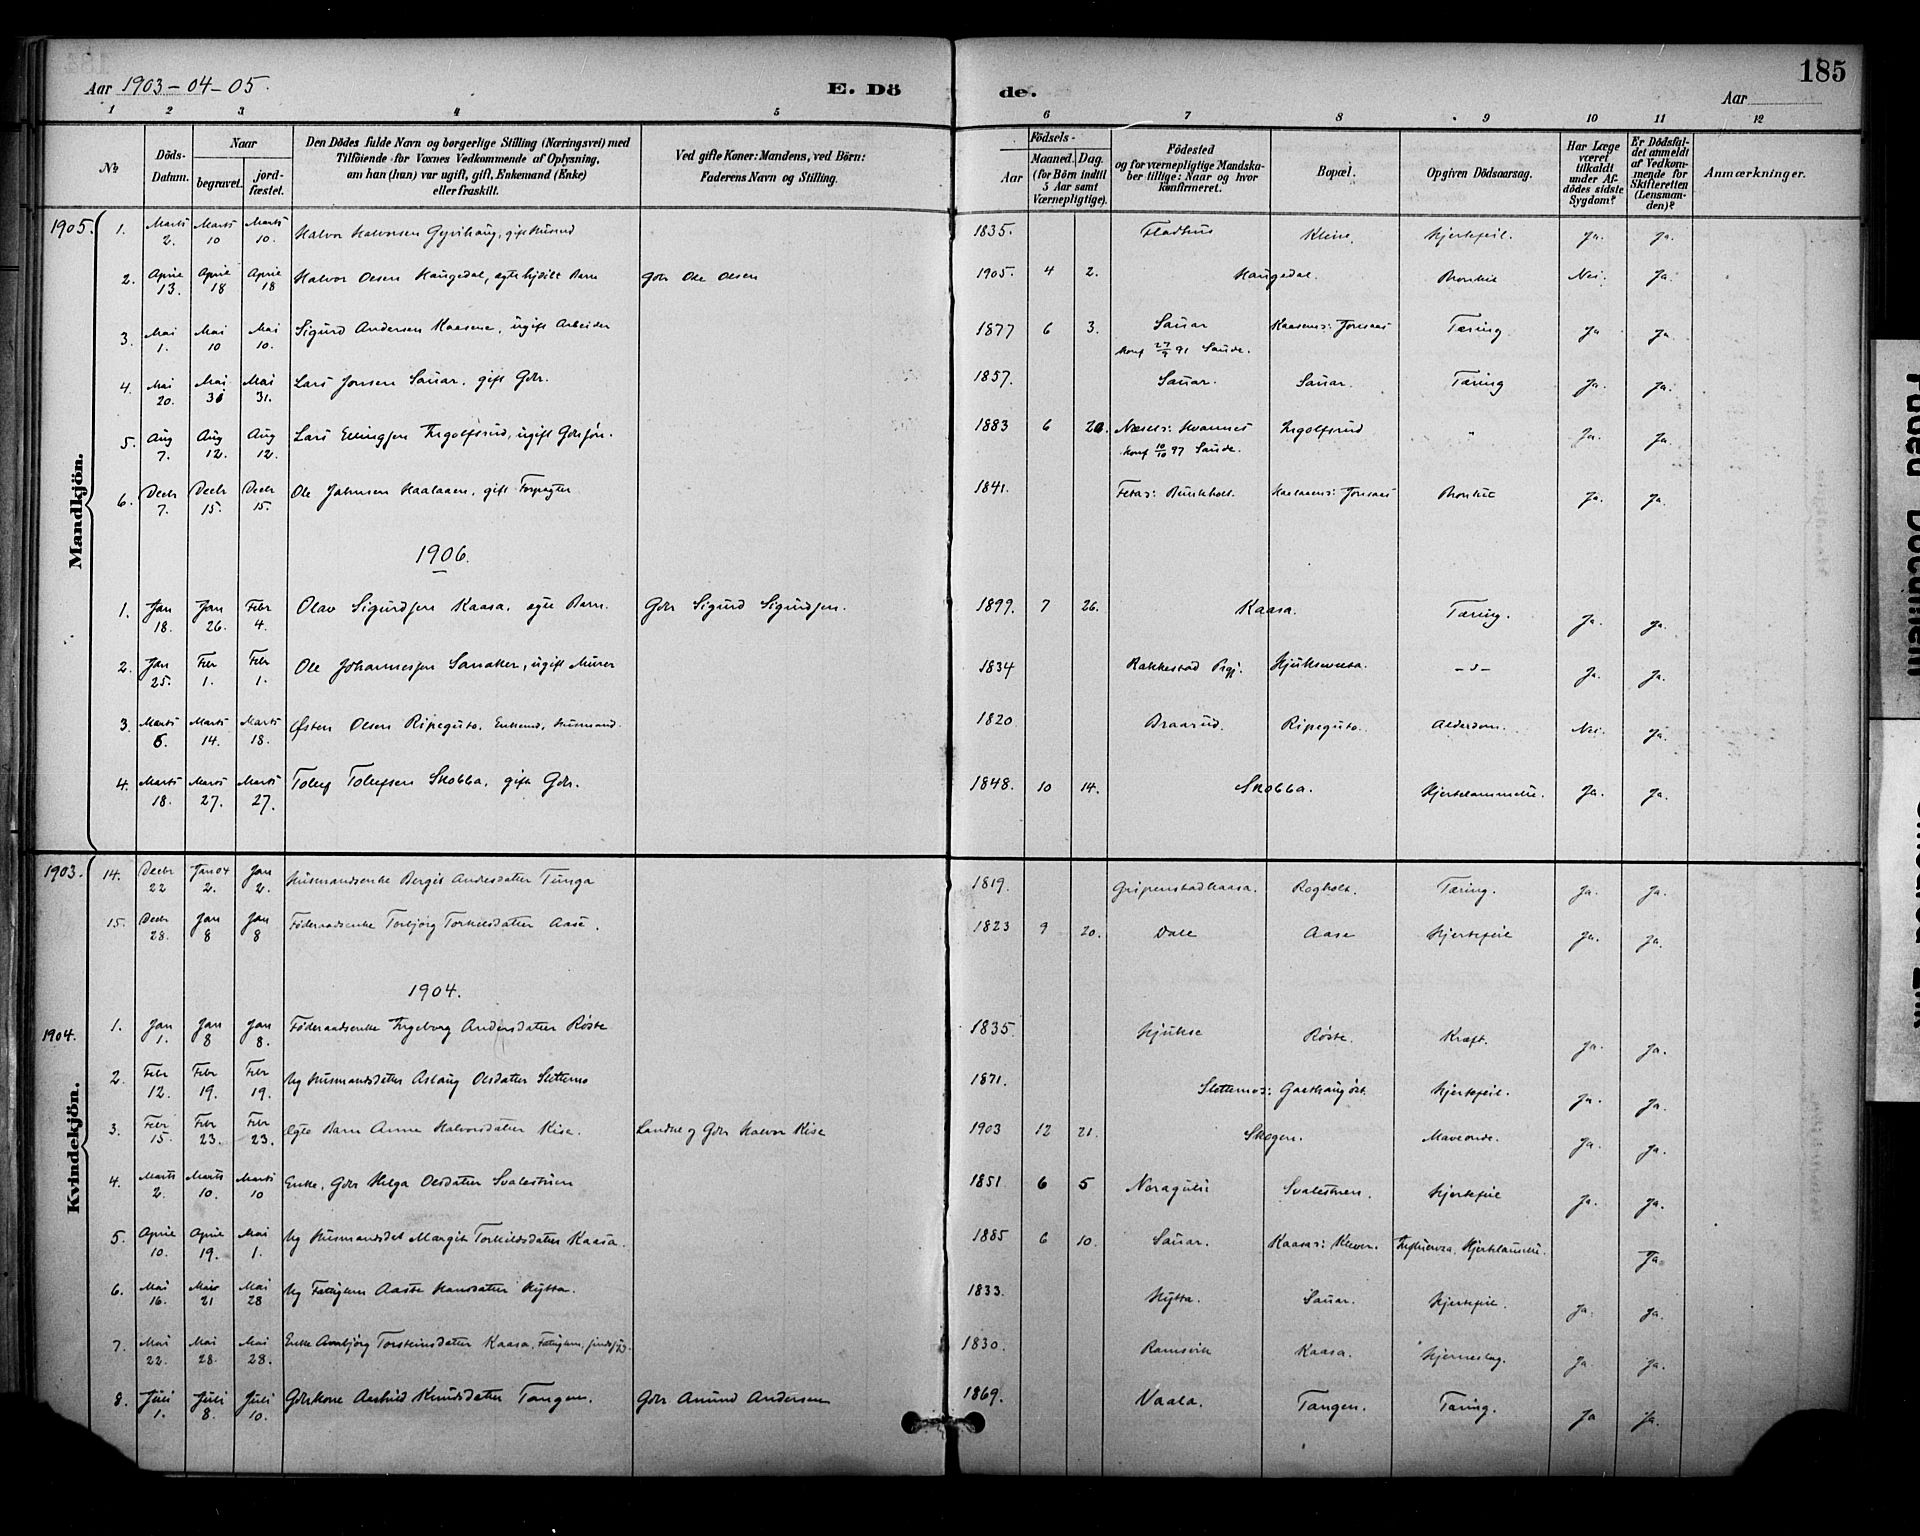 185
Aar 1903-04-05. E. Dö de. Aar
1 2 3 4 5 6 7 8 9 10 11 12
No. Döds-Datum. Naar begravet. jord-fæstet. Den Dödes fulde Navn og borgerlige Stilling (Næringsvei) med Tilföiende for Voxnes Vedkommende af Oplysning, om han (hun) var ugift, gift, Enkemand (Enke) eller fraskilt. Ved gifte Koner: Mandens, ved Börn: Faderens Navn og Stilling. Födsels- Aar Maaned. Dag. (for Börn indtil 5 Aar samt Værnepligtige). Födested og for værnepligtige Mandskaber tillige: Naar og hvor konfirmeret. Bopæl. Opgiven Dödsaarsag. Har Læge været tilkaldt under Afdödes sidste Sygdom? Er Dödsfaldet anmeldt af Vedkommende for Skifteretten (Lensmanden)? Anmærkninger.
Mandkjön.
1905. 1. Marts 2. Marts 10 Marts 10. Halvor Halvorsen Gyvihaug, gift Husmd 1835. Fladhus Kleive. Hjertefeil. Ja. Ja.
2. April 13. April 18 April 18 Halvor Olsen Haugedal, ægte hjdöbt Barn Gbr Ole Olsen 1905. 4 2. Haugedal. Bronkit Nei. Ja.
3. Mai 1. Mai 10 Mai 10. Sigurd Andersen Kaasene, ugift Arbeider 1877 6 3. Sauar Kaasene: Jonsaas Tæring. Ja Ja.
konf 27/9 91 Saude.
4. Mai 20. Mai 31 Mai 31. Lars Jonsen Sauar, gift Gbr. 1857. Sauar. Sauar. Tæring Ja. Ja.
5. Aug 7. Aug 12. Aug 12. Lars Ellingsen Ingolfsrud, ugift Gbrsön. 1883 6 20. Næsets: Hvannes Ingolfsrud " Ja. Ja.
konf 10/10 97 Saude.
6. Decbr 7. Decbr 15. Decbr 15. Ole Jahnsen Haalaaen, gift Forpagter 1841. Fetas: Haalaaens: Jonsaas Bronkit Ja. Ja.
1906.
1. Jan 18. Jan 26. Febr 4. Olav Sigurdsen Kaasa, ægte Barn. Gbr Sigurd Sigurdsen. 1899. 7 26. Kaasa. Tæring. Ja. Ja.
2. Jan 25. Febr 1. Febr 1. Ole Johannesen Sanaker, ugift Murer 1834 Rakkestad Prgj. Hjuksevelta. -"- Ja. Ja.
3. Marts 6. Marts 14. Marts 18. Østen Olsen Ripeguto. Enkemd, Husmand. 1820 Braarud. Ripeguto. Alderdom. Nei. Ja.
4. Marts 18. Marts 27. Marts 27. Tolef Tolefsen Skobba, gift Gbr. 1848. 10 14. Skobba. Hjertelammelse. Ja. Ja.
Kvindekjön.
1903. 14. Decbr 22 Jan 04 2. Jan 2. Husmandsenke Bergit Andersdatter Tunga 1819. Gripenstadkaasa. Rogholt. Tæring. Ja. Ja.
15. Decbr 28. Jan 8 Jan 8 Föderaadsenke Torbjörg Torkilsdatter Aase. 1823 9 20. Dale Aase Hjertefeil Ja. Ja.
1904.
1904. 1. Jan 1. Jan 8 Jan 8. Föderaadsenke Ingeborg Andersdatter Røste 1835. Hjukse Røste. Kræft. Ja. Ja.
2. Febr 12. Febr 19. Febr 19. Ug Husmandsdatter Aslaug Olsdatter Slettemo 1871. Slettemos: Hjertefeil. Ja. Ja.
3. Febr 15. Febr 23. Febr 23. Ægte Barn Anne Halvorsdatter Kise. Landh. og Gbr Halvor Kise 1903 12 21. Skogen. Maveonde. Ja. Ja.
4. Marts 2. Marts 10. Marts 10 Enke, Gbr Helga Olsdatter Svalestuen 1851. 6 5 Noragutu Svalestuen. Hjertefeil Ja. Ja.
5. April 10. April 19. Mai 1. Ug Husmandsdat Margit Torkildsdatter Kaasa. 1885 6 10. Sauar. Kaasas: Kleven. Influenza, Hjertelammelse. Ja.
6. Mai 16. Mai 21 Mai 28 Ug Fattiglem Aaste Hansdatter Hytta. 1833. Hytta. Sauar. Hjertefeil. Ja. Ja.
7. Mai 22. Mai 28. Mai 28. Enke Annbjörg Torsteinsdatter Kaasa, Fattiglem, 1830. Ramsvik Kaasa. Hjerneslag. Ja. Ja.
8. Juli 1. Juli 8. Juli 10. Gbrkone Aashild Knudsdatter Tangen. Gbr Amund Andersen 1869. Vaala. Tangen. Tæring. Ja Ja.
Faded Document